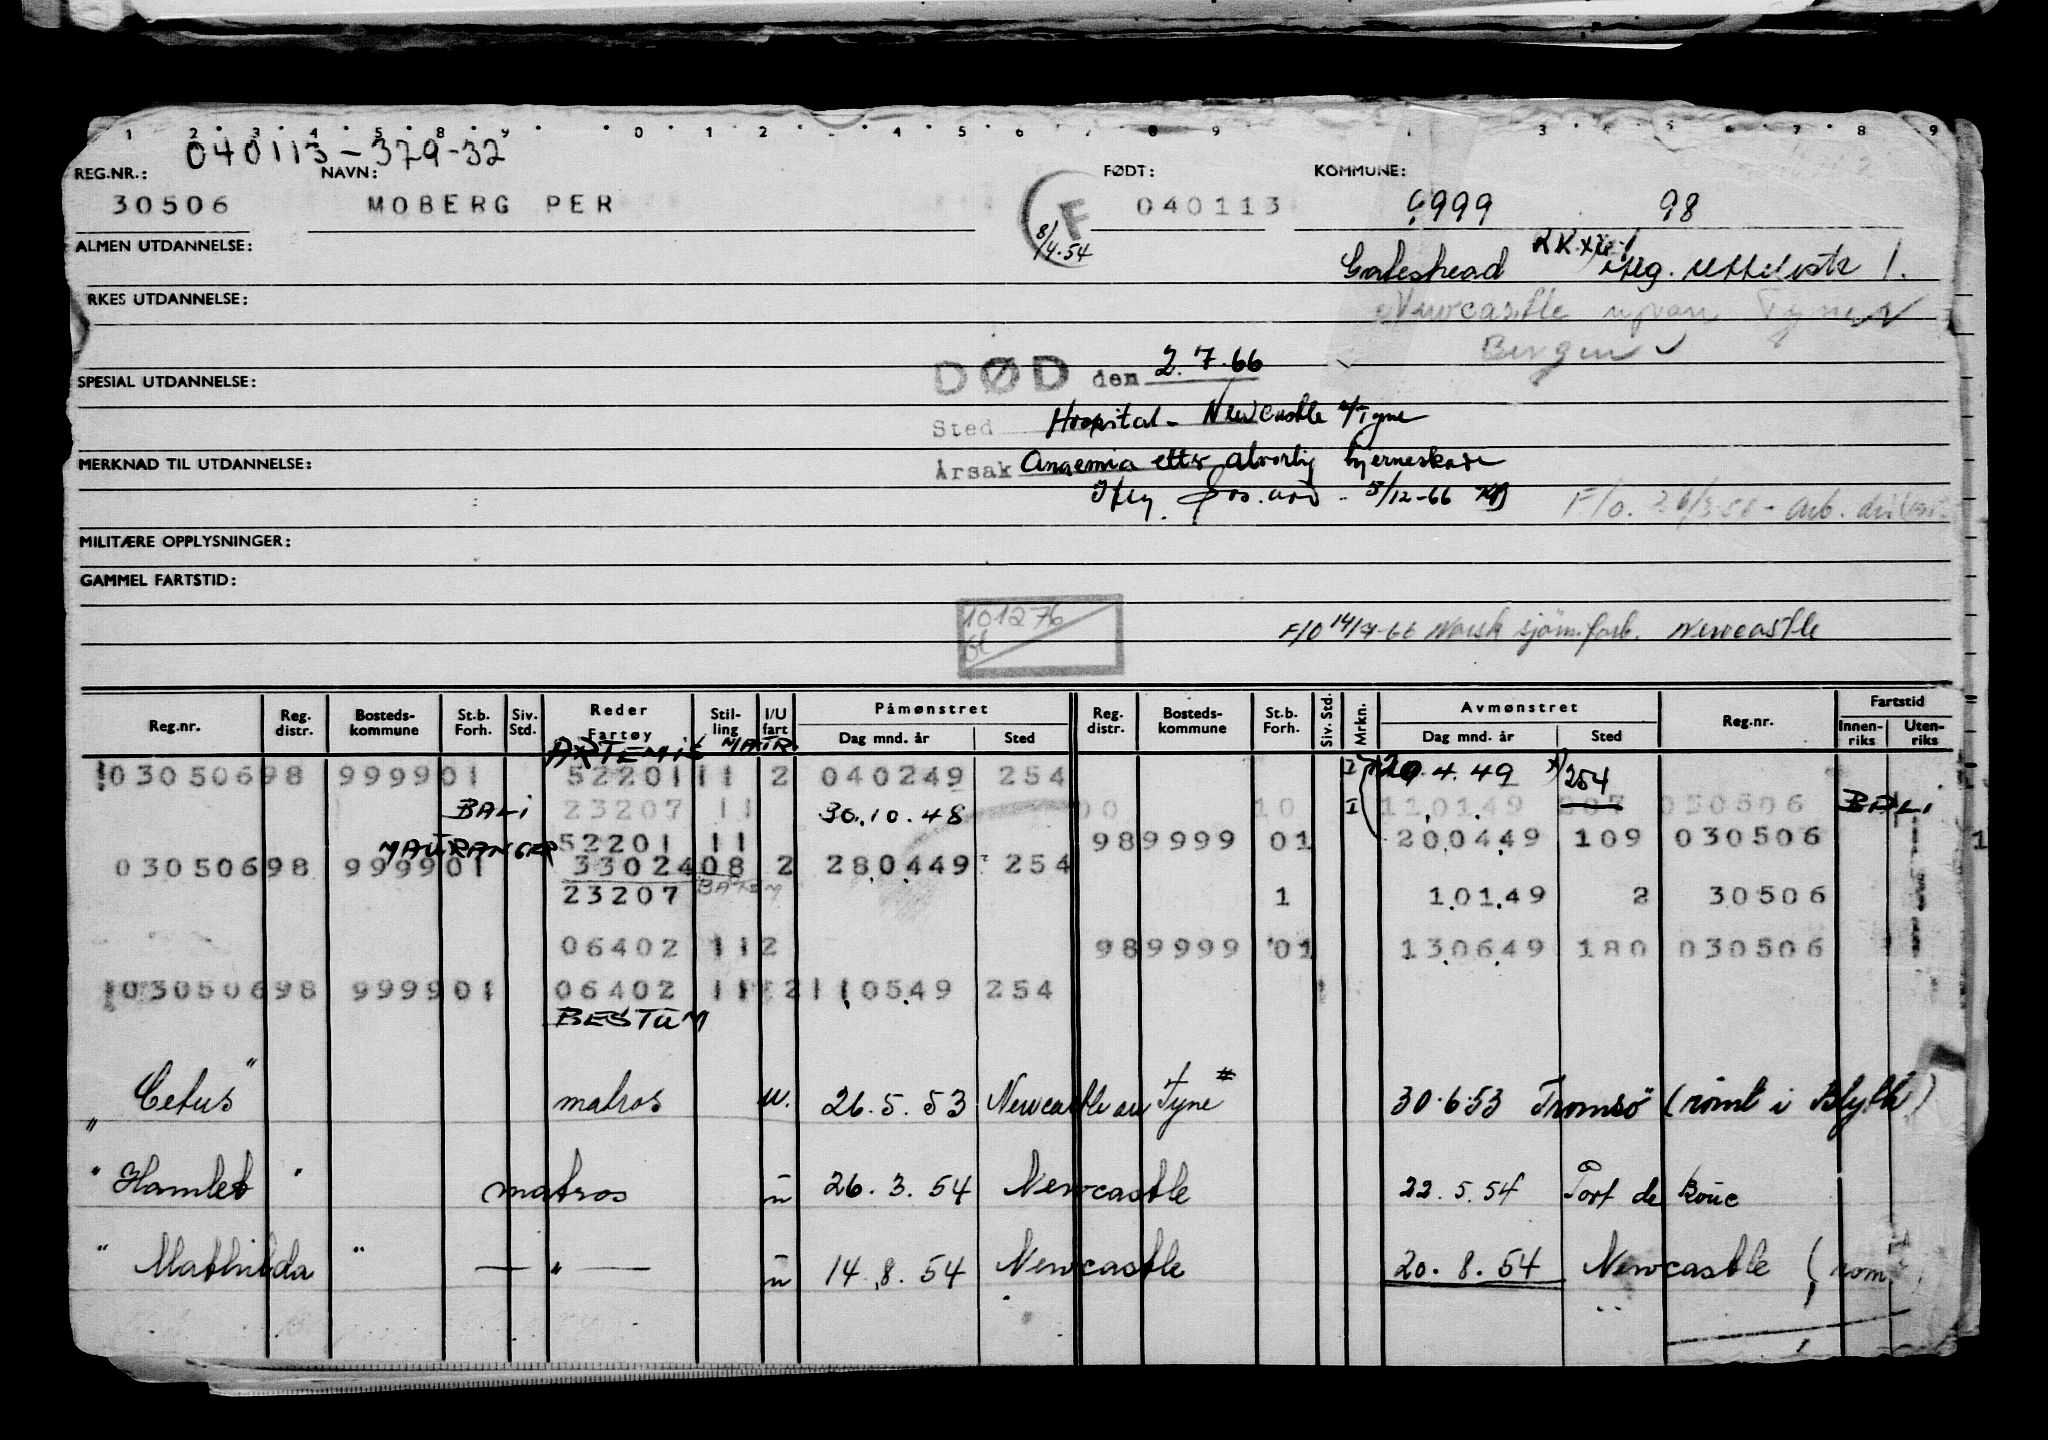 1 2 3 4 5 8 9 0 1 2 4 5 6 8 9 3 7 8 9
040113-379-32
REG.NR.: NAVN: FØDT: KOMMUNE:
30506 MOBERG PER F 040113 9999 98
8/4.54
ALMEN UTDANNELSE: Gateshead
RKES UTDANNELSE: Newcastle upon Tyne
Bergen
DØD den 2.7.66
SPESIAL UTDANNELSE:
Sted Hospital - Newcastle o/Tyne
MERKNAD TIL UTDANNELSE: Årsak Anaemia etter alvorlig hjerneskade
5/12-66
F/o.
MILITÆRE OPPLYSNINGER:
GAMMEL FARTSTID:
101276
F/O 14/7-66 Norsk sjøm.forb. Newcastle
Reg.nr. Reg. distr. Bosteds- kommune St.b. Forh. Siv. Std. Reder Fartøy Stil- ling I/U fart Påmønstret Dag mnd. år Sted Reg. distr. Bosteds- kommune St.b. Forh. Siv. Std. Mrkn. Avmønstret Dag mnd. år Sted Reg.nr. Fartstid Innen- riks Uten- riks
ARTEMIS MATR
030506 98 9999 01 52201 11 2 040249 254 20.4.49 254
BALI 23207 11 30.10.48 110149 207 030506 BALI
52201 11 98 9999 01 200449 109 030506 1
MAURANGER
030506 98 9999 01 33024 08 2 280449 254
23207 1 10149 2 30506
06402 11 2 98 9999 01 130649 180 030506
030506 98 9999 01 06402 11 2 110549 254
BESTUM
"Cetus" matros u. 26.5.53 Newcastle on Tyne 30.6.53 Tromsö (römt i Blyth)
"Hamlet" matros u 26.3.54 Newcastle 22.5.54 Port de Bouc
"Mathilda" — " — u 14.8.54 Newcastle 20.8.54 Newcastle